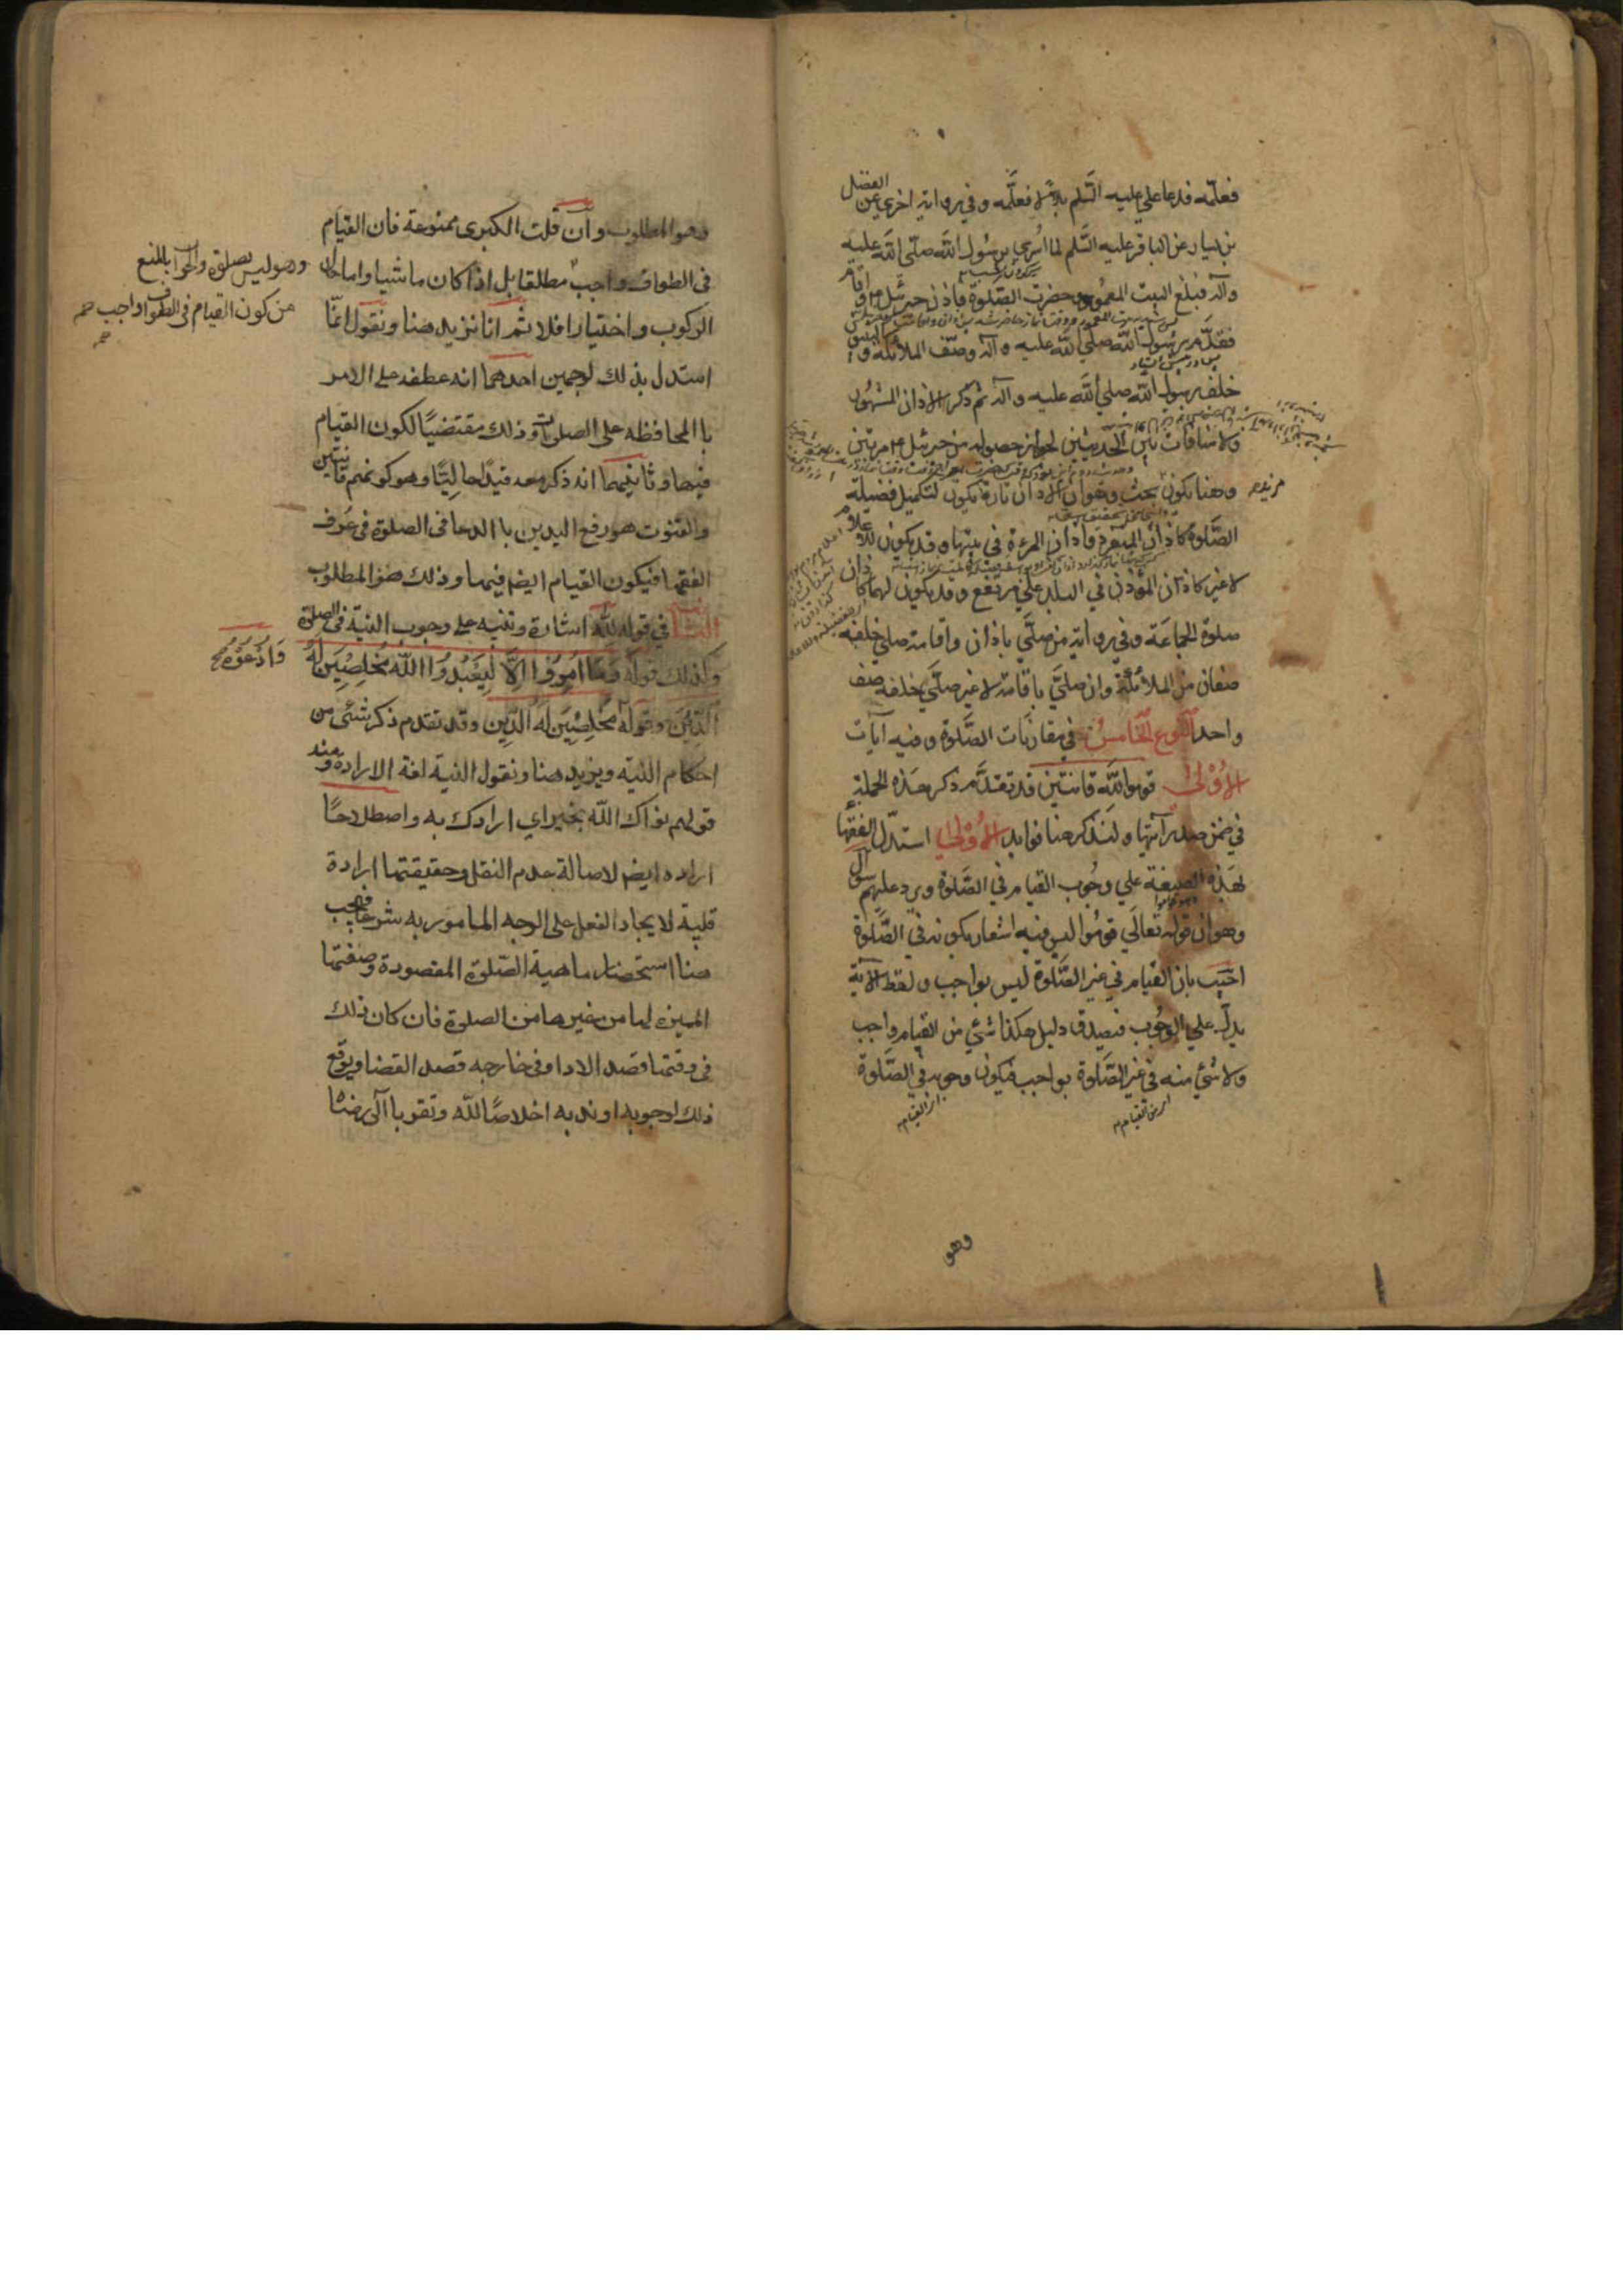 فعلّمه فدعا علي عليه السَّلم بلالاً فعلَّمه و في رواية اخري عن الفضل
بن يسار عن الباقر عليه السَّلم لما اُسري برسُول اللّه صلّي اللّه عليه
وآله فبلغ البيت المعمُور و حضرت الصّلوة فاذن جبرئيل ع و اقام
فتقدَّم رسُول اللّه صلّي اللّه عليه وآله وصفّ الملائكة و النبيّون
خلف رسول اللّه صلي اللّه عليه وآله ثم ذكر الاذان المشهُور
ولا منافات بين الحديثين لجواز حصوله من جبرئيل ع مرتين
وهنا يكون بحث وهو ان الاذان تارة يكون لتكميل فضيلة
الصَّلوة كاذان المنفرد واذان المرءة في بيتها و قد يكون للاعلام
لا غير كاذان المؤذن في البلد علي مرتفع و قد يكون لهما كاذان
صلوة الجماعَة وفي رواية من صلَّي باذان واقامة صلي خلفه
صفان من الملائكة وان صلَّي باقامة لا غير صلَّي خلفه صف
واحد النّوع الخامسُ في مقارنات الصَّلوة وفيه آيات
الاُوْلي قوموا للَّه قانتين قد تقدَّم ذكر هذه الجملة
في ضمن صدر آيتها و لنذكر هنا فوايد الاُوْلي استدّل الفقها
بهَذه الصيغة علي وجُوب القيام في الصَّلوة ويرد عليهم سؤال
وهو ان قوله تعالَي قومُوا ليس فيه اشعار بكونه في الصَّلوة
اجيب بان القيام في غير الصَّلوة ليس بواجب و لفظ الآية
يدلّ علي الوجُوب فيصدق دليل هكذا شئي من القيام واجب
ولا شئ منه في غير الصَّلوة بواجب فيكون وجوبه في الصَّلوة
اي من القيام
اي القيام
وهو
وهو المطلوب وان قلت الكبرى ممنوعة فان القيام
فى الطواف واجب مطلقا بل اذا كان ماشيا واما حال
الركوب و اختيارا فلا ثم انا نزيد هنا ونقول انمّا
استدل بذلك لوجهين احدهما انه عطفه على الامر
باالمحافظه على الصلوات وذلك مقتضيًا لكون القيام
فيها وثانيهما انه ذكر معه قيدًا حاليًّا وهو كونهم قانتين
والقنوت هو رفع اليدين باالدعا فى الصلوة فى عُرف
الفقها فيكون القيام ايضا فيها وذلك هو المطلوب
الثانية في قوله للّه اشارة و تنبيه على وجوب النية فى الصلوة
وكذلك قوله وَمَا اُمِرُوا اِلَّا لِيَعْبُدُوا اللّهَ مُخلِصِيَن لَهُ
الدِّيْنَ وقوله مُخلِصْيَن لَهُ الدِّيِن وقد تقدم ذكر شئ من
احكام النية ويزيد هنا ونقول النية لغة الارادة ومنه
قولهم نواك اللّه بخير اي ارادك به واصطلاحًا
اراده ايضا لاصالة عدم النقل وحقيقتها ارادة
قلبية لايجاد الفعل على الوجه المامور به شرعا فيجب
هنا استحضار ماهية الصّلوة المقصودة وصفتها
المميزة لها من غيرها من الصلوة فان كان ذلك
فى وقتها قصد الادا وفى خارجه قصد القضا ويوقع
ذلك لوجوبه او ندبه اخلاصًا للّه وتقربا الى رضا
وهو ليس بصلوة والجواب بالمنع
من كون القيام فى الطواف واجب
وَادْعُوْهُ